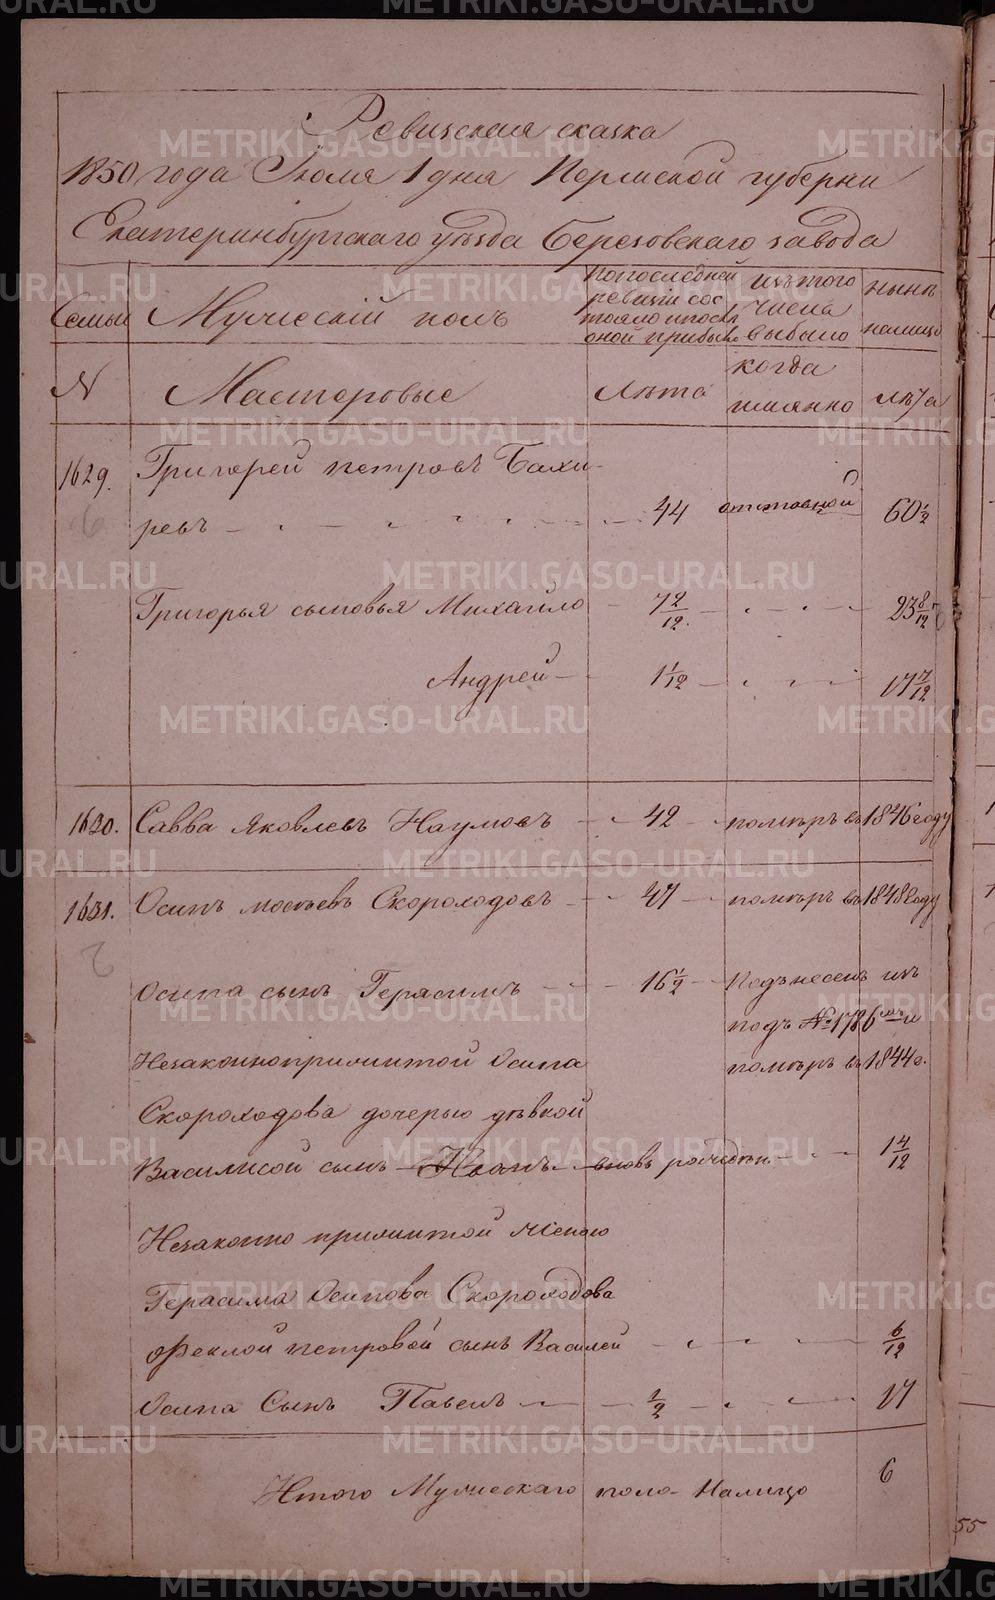 Ревизская сказка
1850 года Июля 1 дня Пермской губернии
Екатеринбургскаго уезда Березовскаго завода
Семьи Мужескiй полъ
попоследней ревизiи состояло ипосле оной прибыло
изътого числа выбыло
ныне налицо
N Мастеровые Лѣта когда имянно лѣта
1629. Григорей петровъ Бахи-
ревъ 44 отставной 60 1/2
Григорья сыновья Михайло 7 2/12 23 8/12
Андрей 1 1/12 17 7/12
1630. Савва Яковлевъ Наумовъ 42 помѣръ въ 1846 году
1631. Осипъ Скороходовъ 47 помѣръ въ 1848 году
Осипа сынъ Герасимъ 16 1/2 изъ
подъ № 1786 и
Незаконноприжитой Осипа помѣръ въ 1844 г.
Скороходова дочерью дѣвкой
Василисой сынъ Иванъ вновь рожденъ 1 4/12
Незаконно прижитой женою
Герасима Осипова Скороходова
Феклой петровой сынъ Василей 6/12
Осипа Сынъ Павелъ 1/2 17
Итого Мужескаго пола Налицо 6
55
METRIKI.GASO-URAL.RU